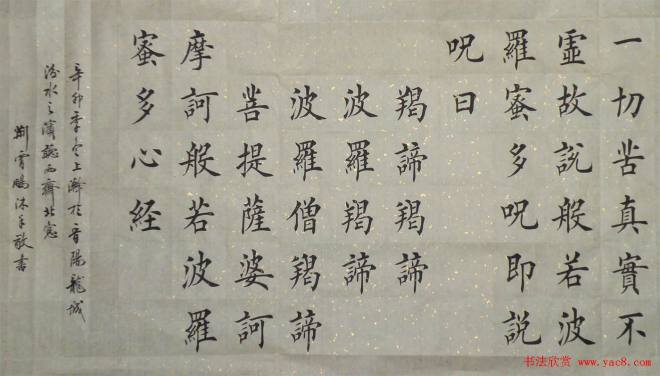 一切苦真實不
虛故說般若波
羅蜜多呪即説
呪曰
羯諦羯諦
波羅羯諦
波羅僧羯諦
菩提薩婆訶
摩訶般若波羅
蜜多心経
辛卯季冬上澣於晋陽龍城
汾水之濱聽雨齋北窓
荆霄鵬沐手敬書
书法欣赏 www.yac8.com